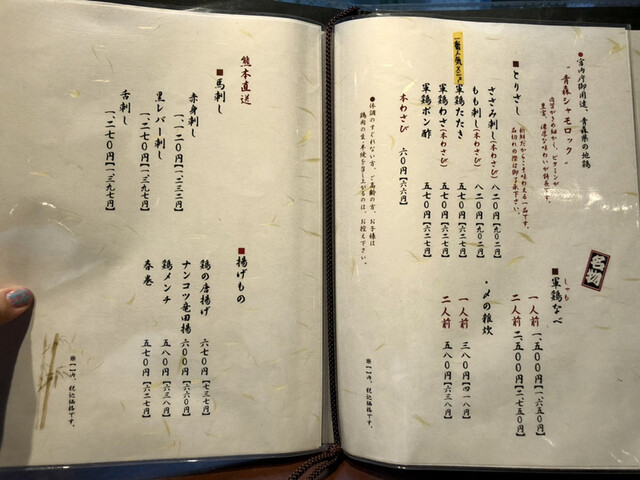 ●宮内庁御用達、青森県の地鶏
“青森シャモロック”
■とりさし
ささみ刺し(本わさび) 八二〇円【九〇二円】
もも刺し(本わさび) 八二〇円【九〇二円】
一番人気メニュー
軍鶏たたき 五七〇円【六二七円】
軍鶏わさ(本わさび) 五七〇円【六二七円】
軍鶏ポン酢 五七〇円【六二七円】
本わさび 六〇円【六六円】
●体調のすぐれない方、ご高齢の方、お子様は
鶏肉の生・半焼を召し上がるのは、お控え下さい。
名物
■軍鶏なべ
しゃも
一人前 一、五〇〇円【一、六五〇円】
二人前 二、五〇〇円【二、七五〇円】
・〆の雑炊
一人前 三八〇円【四一八円】
二人前 五三〇円【五八三円】
※【 】内、税込価格です。
熊本直送
■馬刺し
赤身刺し 一、一二〇円【一、二三二円】
黒レバー刺し 一、二七〇円【一、三九七円】
舌刺し 一、二七〇円【一、三九七円】
■揚げもの
鶏の唐揚げ 六七〇円【七三七円】
ナンコツ竜田揚 六〇〇円【六六〇円】
鶏メンチ 五八〇円【六三八円】
春巻 五七〇円【六二七円】
※【 】内、税込価格です。